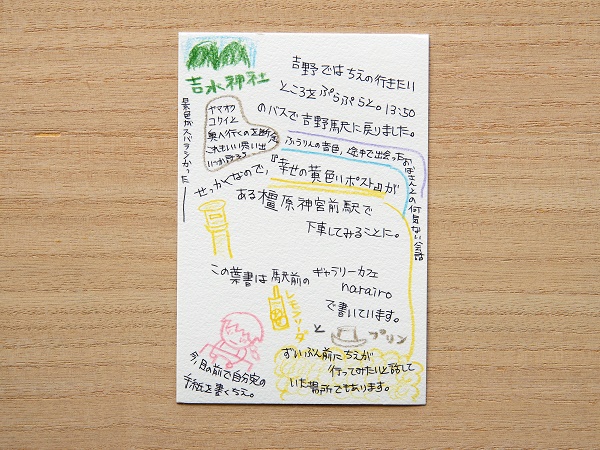 吉水神社
景色がスバラシかった
吉野ではちえの行きたい
ところをぷらぷらと。13:50
のバスで吉野駅に戻りました。
ヤマオク
コワイと
奥へ行くのを断念
これもいい思い出
いつか行こう
ふうりんの音色、途中で出会ったおばさんとの何気ない会話
せっかくなので、『幸せの黄色いポスト』が
ある橿原神宮前駅で
下車してみることに。
この葉書は駅前のギャラリーカフェ
narairo
で書いています。
レモンソーダ
と
プリン
今、目の前で自分宛の
手紙を書くちえ。
ずいぶん前にちえが
行ってみたいと話して
いた場所でもあります。